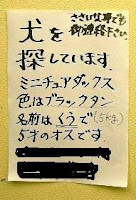 ささいな事でも
御連絡下さい。
犬を
探しています。
ミニチュアダックス
色はブラックタン
名前はくうで(5kg)
5才のオスです。